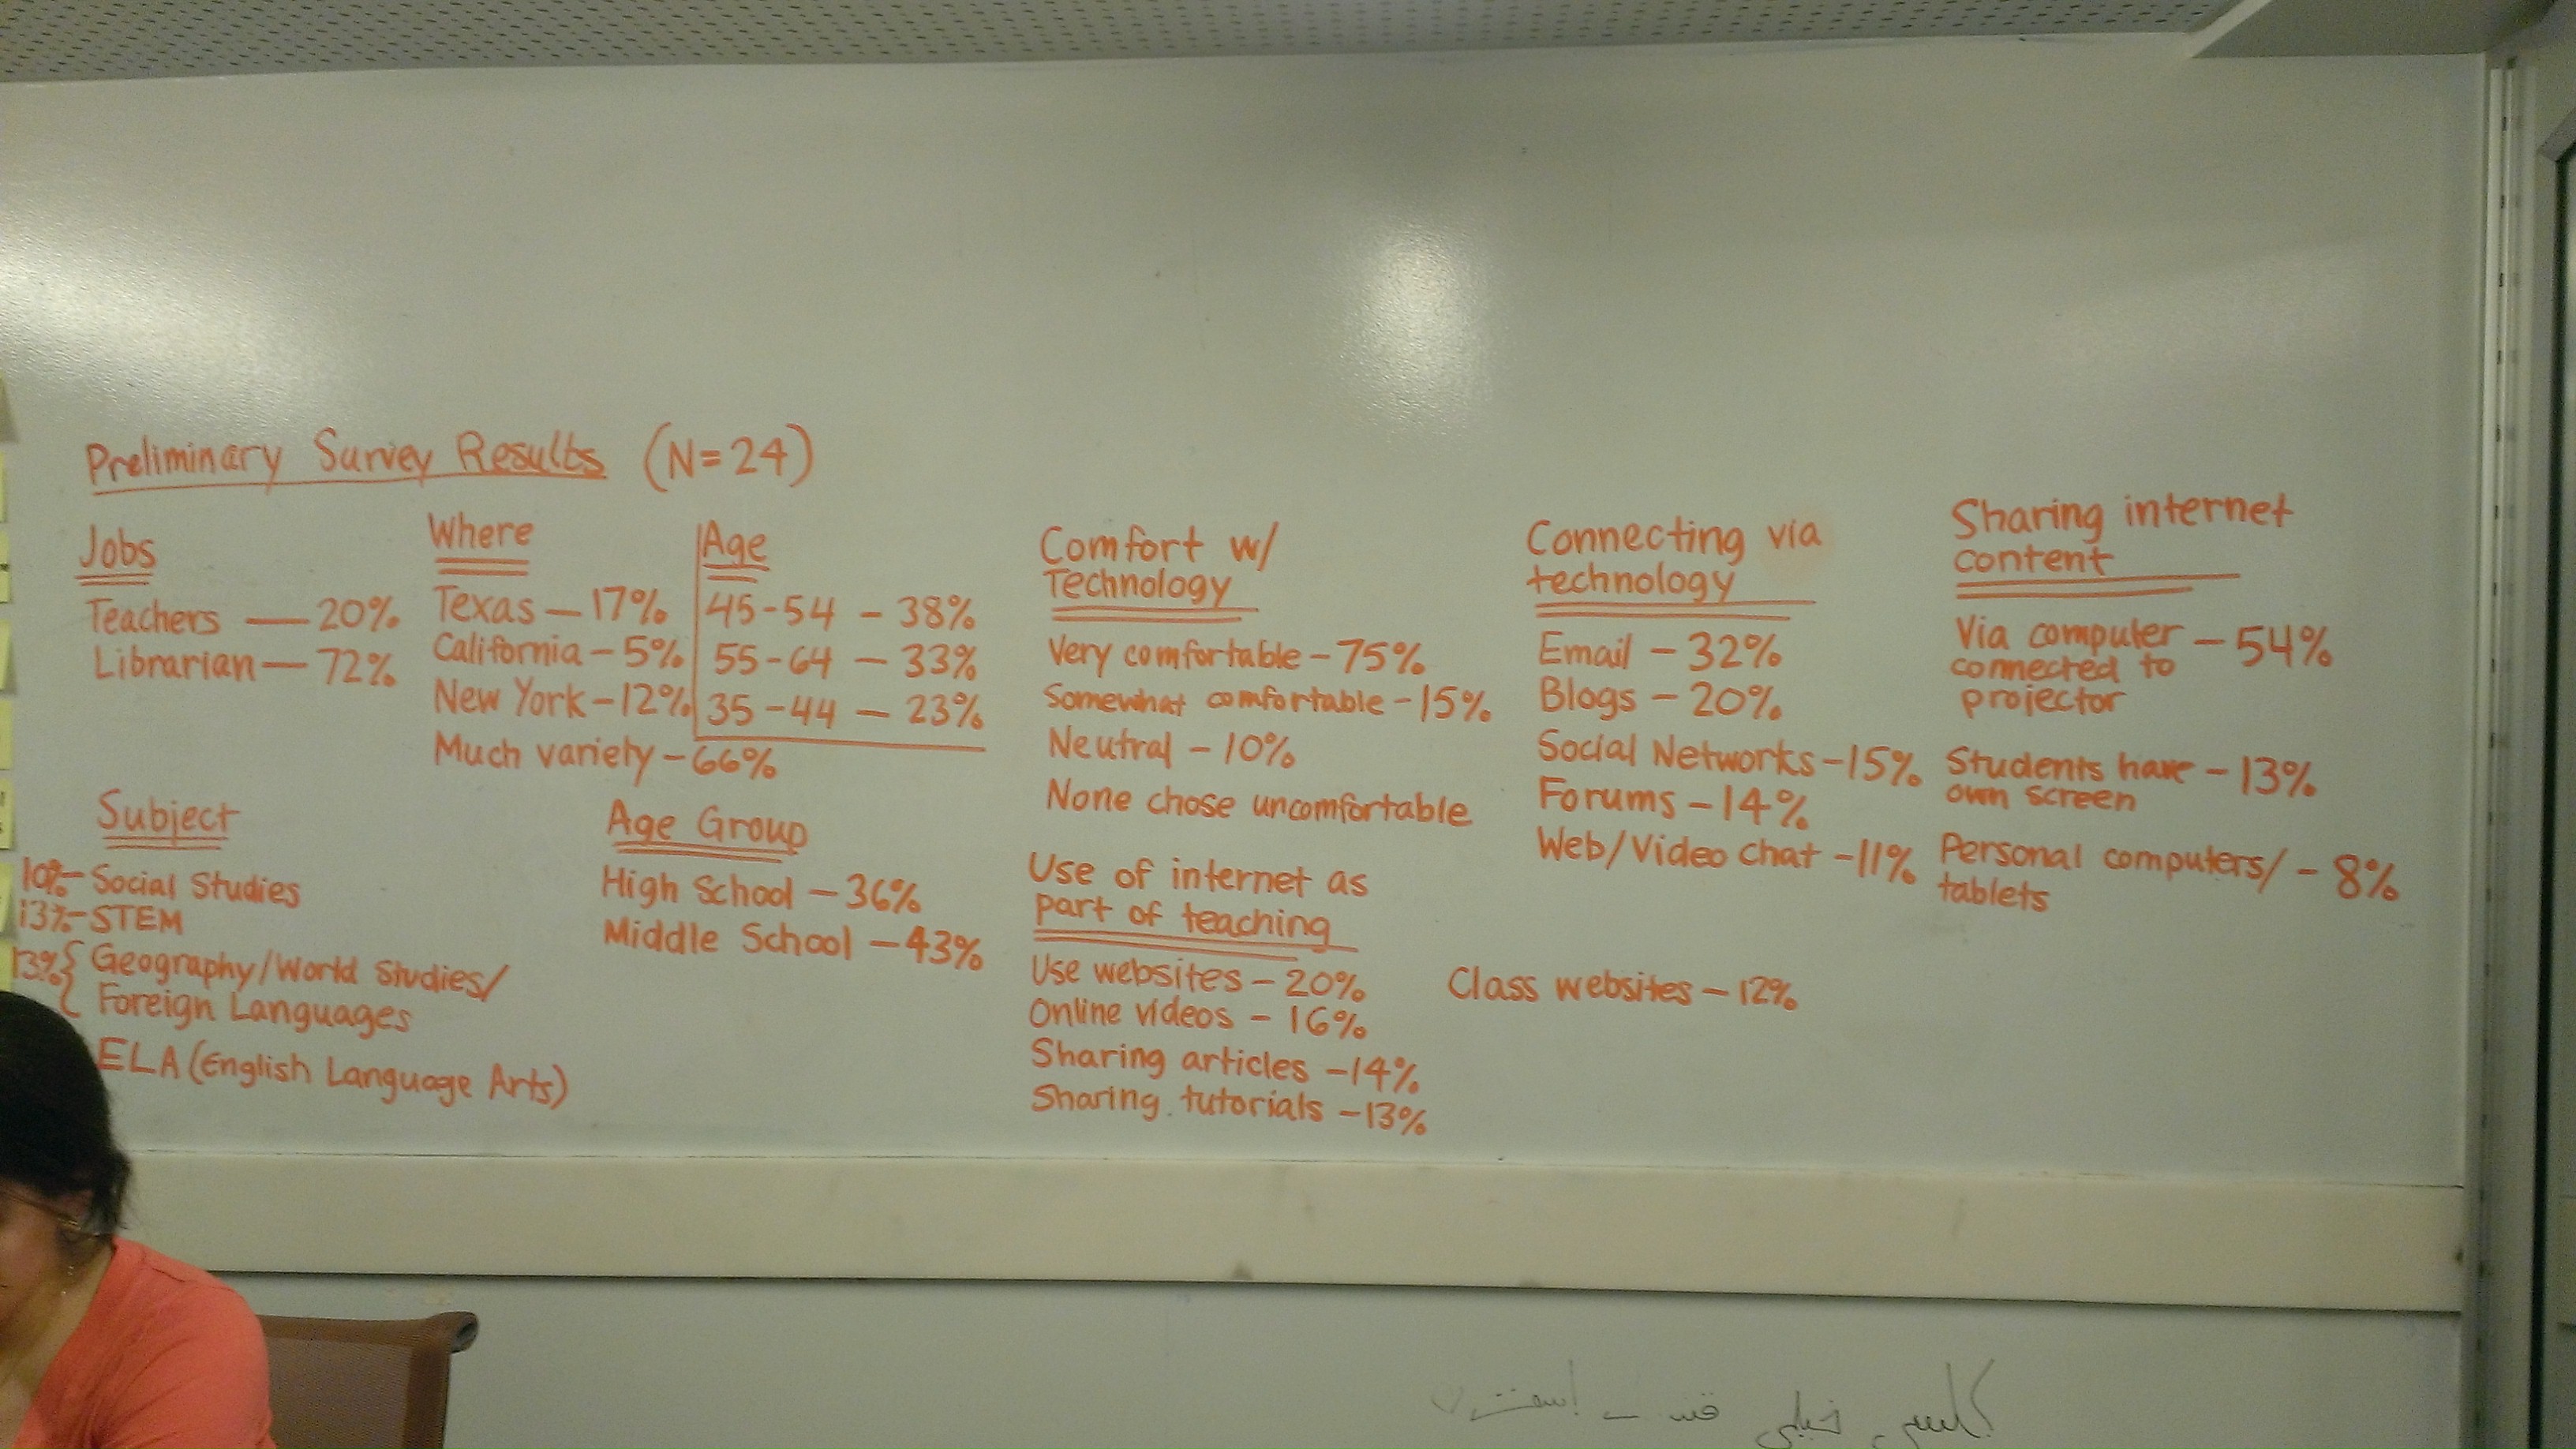 Preliminary Survey Results (N=24)
Jobs
Teachers — 20%
Librarian — 72%
Where
Texas — 17%
California — 5%
New York — 12%
Much variety — 66%
Age
45-54 — 38%
55-64 — 33%
35-44 — 23%
Subject
10% - Social Studies
13% - STEM
13% { Geography/World Studies/
Foreign Languages
ELA (English Language Arts)
Age Group
High School — 36%
Middle School — 43%
Comfort w/
Technology
Very comfortable - 75%
Somewhat comfortable - 15%
Neutral - 10%
None chose uncomfortable
Use of internet as
part of teaching
Use websites - 20%
Online videos - 16%
Sharing articles - 14%
Sharing tutorials - 13%
Class websites - 12%
Connecting via
technology
Email - 32%
Blogs - 20%
Social Networks - 15%
Forums - 14%
Web/Video chat - 11%
Sharing internet
content
Via computer - 54%
connected to
projector
Students have - 13%
own screen
Personal computers/ - 8%
tablets
خیلی